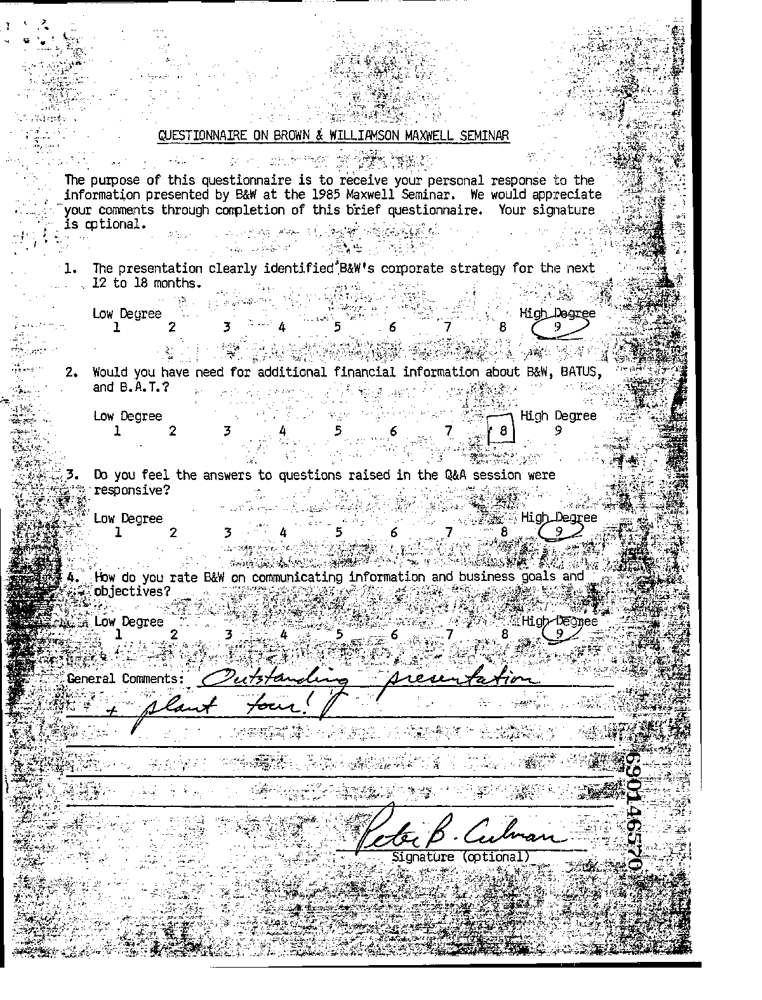 QUESTIONNAIRE ON BROWN & WILLIAMSON MAXWELL SEMINAR
The purpose of this questionnaire is to receive your personal response to the
information presented by B&W at the 1985 Maxwell Seminar. We would appreciate
your comments through completion of this brief questionnaire. Your signature
is optional.
1. The presentation clearly identified B&W's corporate strategy for the next
12 to 18 months.
Low Degree High Degree
1 2 3 4 5 6 7 8 9
2. Would you have need for additional financial information about B&W, BATUS,
and B.A.T.?
Low Degree High Degree
1 2 3 4 5 6 7 8 9
3. Do you feel the answers to questions raised in the Q&A session were
responsive?
Low Degree High Degree
1 2 3 4 5 6 7 8 9
4. How do you rate B&W on communicating information and business goals and
objectives?
Low Degree High Degree
1 2 3 4 5 6 7 8 9
General Comments: Outstanding presentation
+ plant tour!
Peter B. Culman
Signature (optional)
690146570